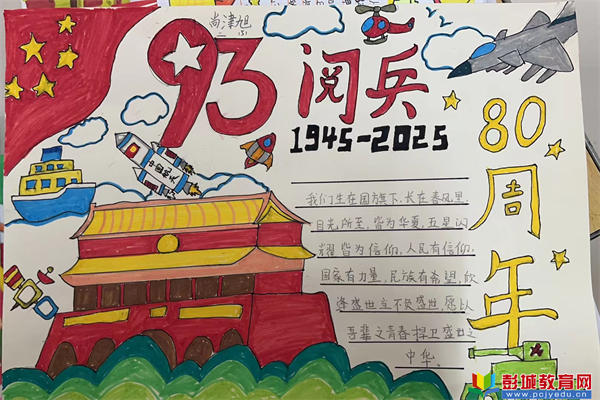 尚津旭
93阅兵
1945-2025
80周年
中国航天
我们生在国旗下,长在春风里
目光所至,皆为华夏,五星闪
耀皆为信仰,人民有信仰,
国家有力量,民族有希望,欣
逢盛世不负盛世,愿以
吾辈之青春捍卫盛世之
中华。
彭城教育网
www.pcjyedu.cn